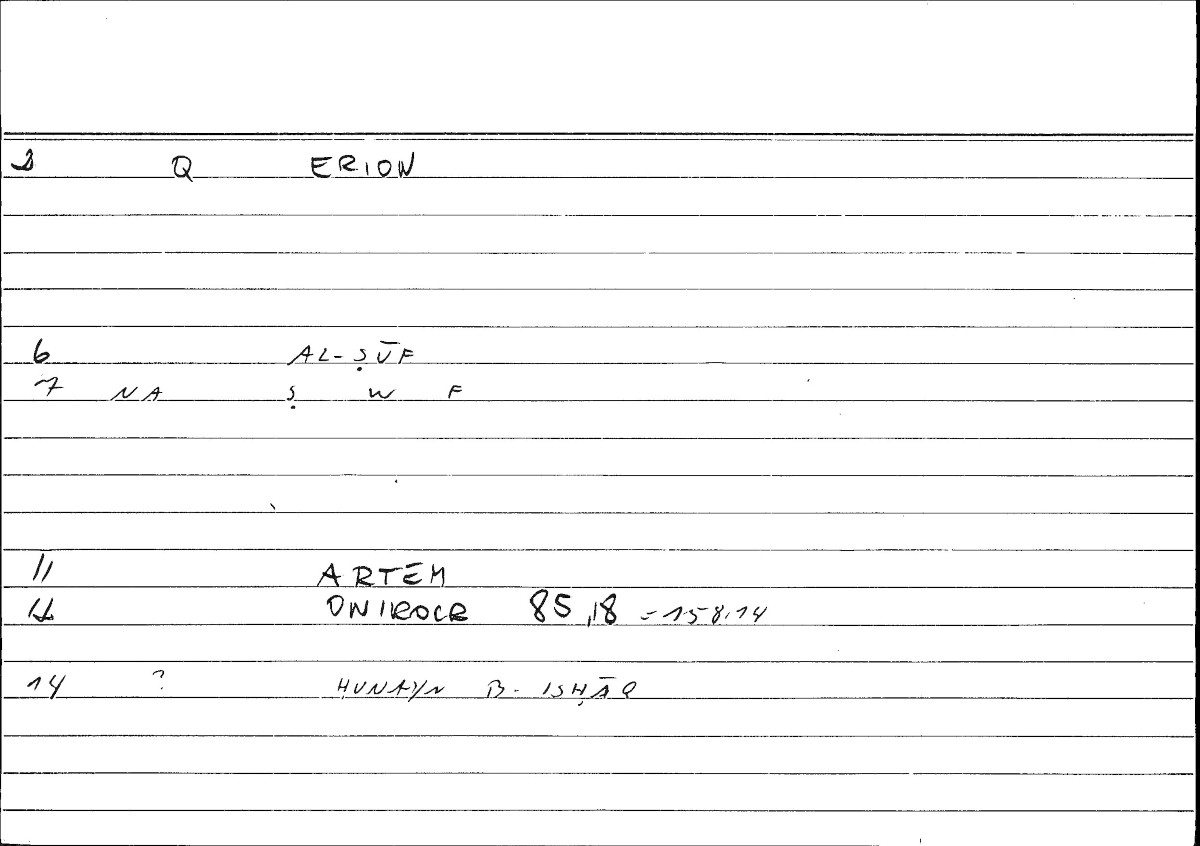 2 Q ERION
6 AL-ṢŪF
7 NA Ṣ W F
11 ARTEM
12 ONIROCR 85,18 = 158,14
14 ? HUNAYN B- ISḤĀQ